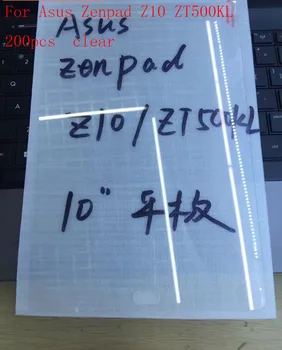 For Asus Zenpad Z10 ZT500KL
200pcs clear
Asus
zenpad
Z10/ZT500KL
10" 平板